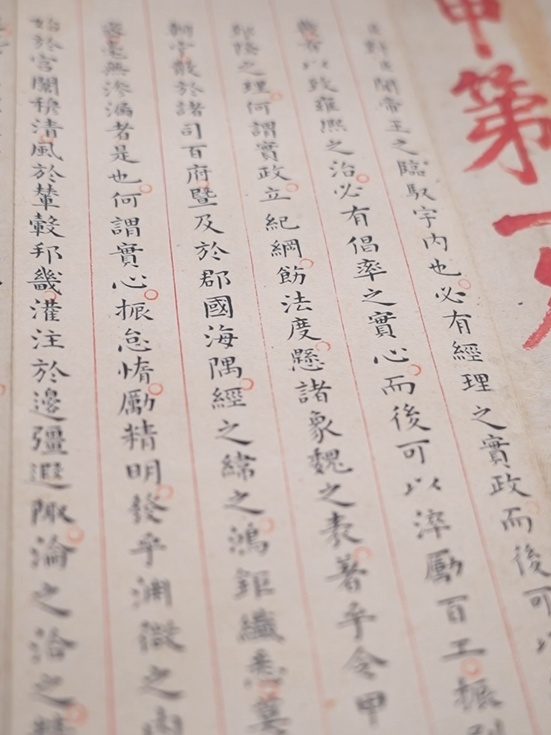 甲第一
臣對臣聞帝王之臨馭宇內也必有經理之實政而後可以
有以致雍熙之治必有倡率之實心而後可以淬勵百工振刷
郅隆之理何謂實政立紀綱飭法度懸諸象魏之表著乎令甲
朝宁散於諸司百府暨及於郡國海隅經之緯之鴻鉅纖悉莫
密毫無滲漏者是也何謂實心振怠惰勵精明發乎淵微之內
始於宮闈穆清風於輦轂邦畿灌注於邊彊遐陬淪之洽之精